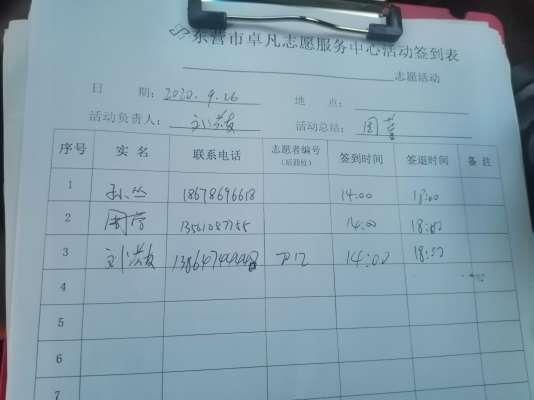 东营市卓凡志愿服务中心活动签到表
志愿活动
日 期：2020.9.26 地 点：
活动负责人： 活动总结：周
序号 实 名 联系电话 志愿者编号（后四位） 签到时间 签退时间 备 注
1 孙丛 18678696618 14:00 18:00
2 周 14:00 18:00
3 刘 14:00 18:00
4
5
6
7